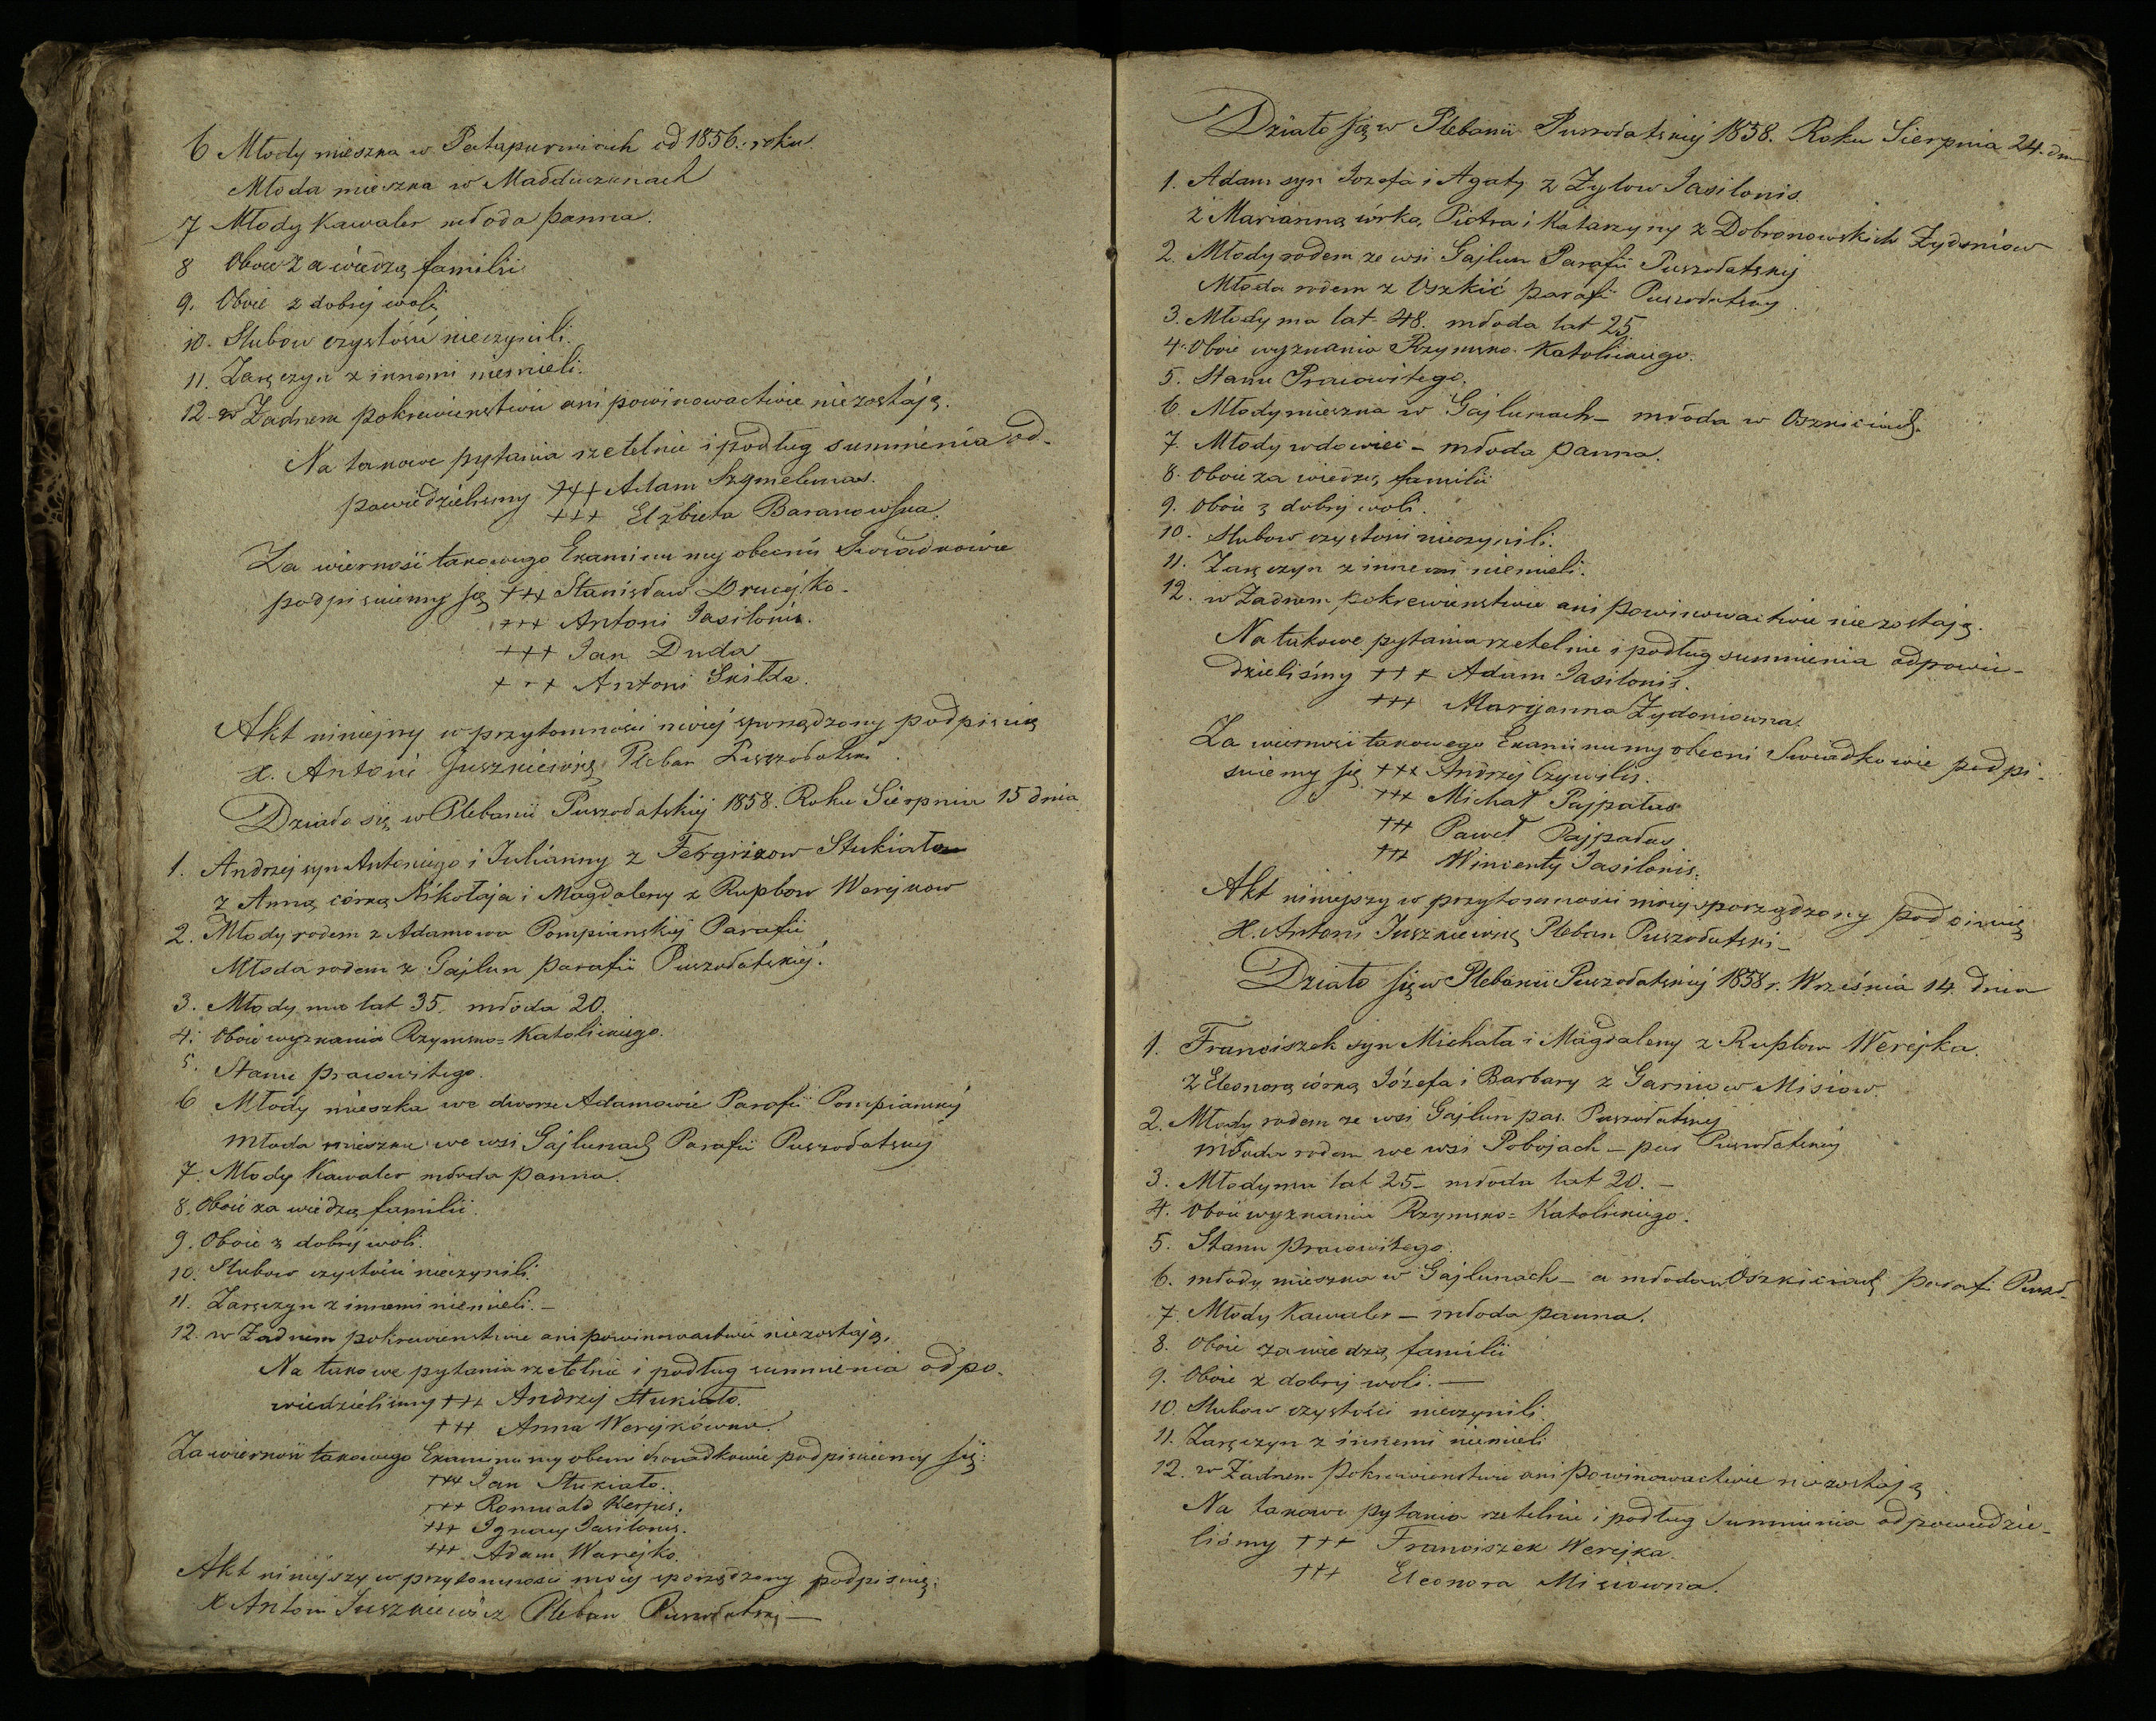 6 Młody mieszka w Patapurwiach od 1856. roku.
Młoda mieszka w Maddiuzunach
7 Młody Kawaler młoda panna.
8 Oboie za wiedzą familii
9. Oboie z dobrej woli
10. Slubow czystości nieczynili.
11. Zaręczyn z innemi niemieli.
12. w Żadnem pokrewieństwie ani powinowactwie niezostają.
Na takowe pytania rzetelnie i podług sumnienia od-
powiedzielismy +++ Adam Szymelunas.
+++ Elżbieta Baranowska.
Za wiernosć takowego Examinu my obecni Swiadkowie
podpisuiemy się +++ Stanisław Drucejko.
+++ Antoni Jasilonis.
+++ Jan Duda
+++ Antoni Skilda.
Akt niniejszy w przytomności mojej sporządzony podpisuię
X. Antoni Juszkiewicz Pleban Puszołatski.
Działo się w Plebanii Puszołatskiej 1858. Roku Sierpnia 15 dnia
1. Andrzej syn Antoniego i Julianny z Fergizow Stukiało
z Anną córką Nikołaja i Magdaleny z Rupbow Werejkow
2. Młody rodem z Adamowa Pompianskiej Parafii
Młoda rodem z Gajlun parafii Puszołatskiej.
3. Młody ma lat 35. młoda 20.
4. Oboie wyznania Rzymsko=Katolickiego.
5. Stanu pracowitego.
6 Młody mieszka we dworze Adamowie Parafii Pompianskiej
Młoda mieszka we wsi Gajlunach Parafii Puszołatskiej
7. Młody Kawaler młoda panna.
8. Oboie za wiedzą familii.
9. Oboie z dobrej woli.
10. Slubow czystości nieczynili.
11. Zaręczyn z innemi niemieli. –
12. w Żadnem pokrewienstwie ani powinowactwie niezostają.
Na takowe pytania rzetelnie i podług sumnienia odpo-
wiedzielismy +++ Andrzej Stukiało.
+++ Anna Werejkówna.
Za wiernosć takowego Examinu my obecni swiadkowie podpisuiemy się:
+++ Jan Stukiało.
+++ Romuald Kerpis.
+++ Ignacy Jasilonis.
+++ Adam Warejko.
Akt niniejszy w przytomności mojej sporządzony podpisuię.
X Antoni Juszkiewicz Pleban Puszołatski —
Działo się w Plebanii Puszołatskiej 1858. Roku Sierpnia 24. dnia
1. Adam syn Jozefa i Agaty z Zylow Jasilonis.
z Marianną córką Piotra i Katarzyny z Dobronowskich Zydoniow
2. Młody rodem ze wsi Gajlun Parafii Puszołatskiej
Młoda rodem z Oszkić parafii Puszołatskiej.
3. Młody ma lat 48. młoda lat 25
4. Oboie wyznania Rzymsko. Katolickiego.
5. Stanu Pracowitego.
6. Młody mieszka w Gajlunach – młoda w Oszkiciach.
7. Młody wdowiec – młoda panna.
8. Oboie za wiedzą familii
9. Oboie z dobrej woli.
10. Slubow czystości nieczynili.
11. Zaręczyn z innemi niemieli.
12. w Żadnem pokrewieństwie ani powinowactwie niezostają.
Na takowe pytania rzetelnie i podług sumnienia odpowie-
dzieliśmy +++ Adam Jasilonis.
+++ Maryanna Zydoniowna.
Za wiernosć takowego Examinu my obecni Swiadkowie podpi-
suiemy się +++ Andrzej Czywilis.
+++ Michał Pajpałas
+++ Paweł Pajpałas
+++ Wincenty Jasilonis.
Akt niniejszy w przytomności mojej sporządzony podpisuię
X. Antoni Juszkiewicz Pleban Puszołatski –
Działo się w Plebanii Puszołatskiej 1858 r. Września 14. dnia
1. Franciszek syn Michała i Magdaleny z Rupbow Werejka.
z Eleonorą córką Józefa i Barbary z Garniow Misiow
2. Młody rodem ze wsi Gajlun par. Puszołatskiej
młoda rodem we wsi Pobojach – par Puszołatskiej
3. Młody ma lat 25 – młoda lat 20. –
4. Oboie wyznania Rzymsko=Katolickiego.
5. Stanu pracowitego.
6. młody mieszka w Gajlunach – a młoda w Oszkiciach parafii Puszoł-
7. Młody Kawaler – młoda panna.
8. Oboie za wiedzą familii
9. Oboie z dobrej woli. —
10. Slubow czystości nieczynili
11. Zaręczyn z innemi niemieli
12. w Żadnem pokrewieństwie ani powinowactwie niezostają
Na takowe pytania rzetelnie i podług sumnienia odpowiedzie-
liśmy +++ Franciszek Werejka.
+++ Eleonora Misiowna.